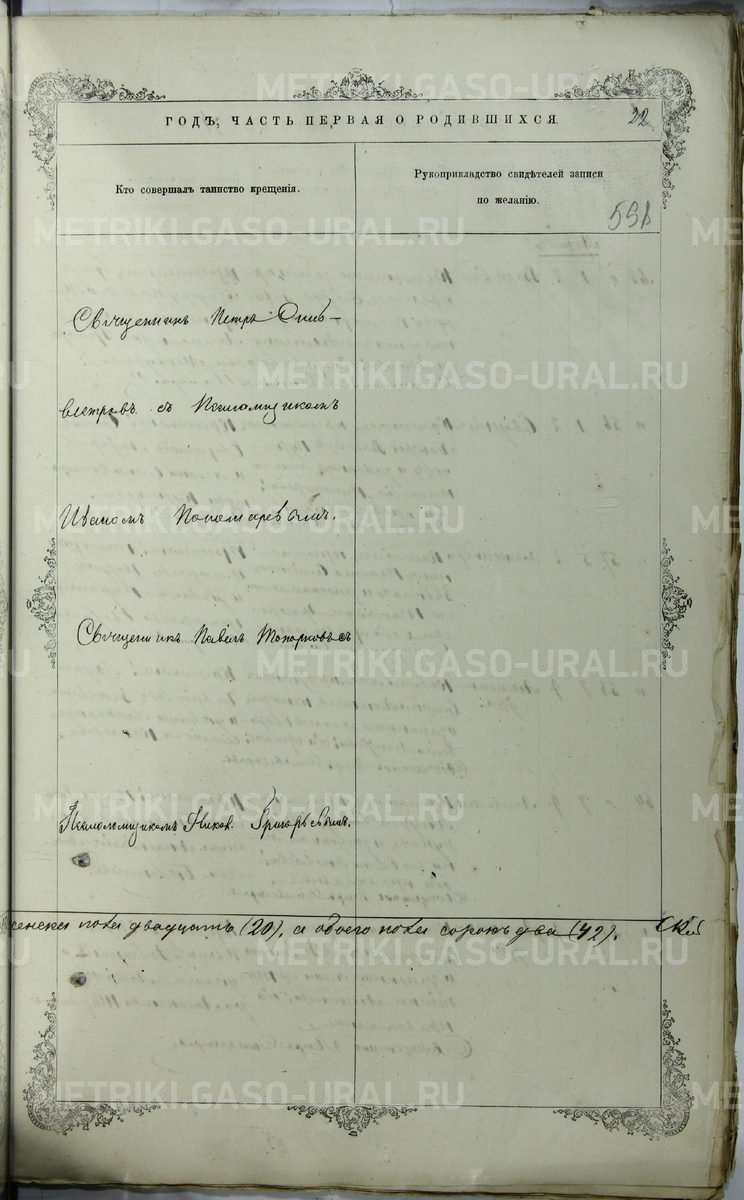 ГОДЪ, ЧАСТЬ ПЕРВАЯ О РОДИВШИХСЯ.
22
Кто совершалъ таинство крещенія.
Рукоприкладство свидѣтелей записи
по желанію.
591
Священникъ Петръ Силь-
вестровъ съ Псаломщикомъ
Иваномъ Пономаревымъ.
Священникъ Павелъ Топорковъ съ
Псаломщикомъ Григорьевымъ.
женска пола двадцать (20), а обоего пола сорокъ два (42).
METRIKI.GASO-URAL.RU